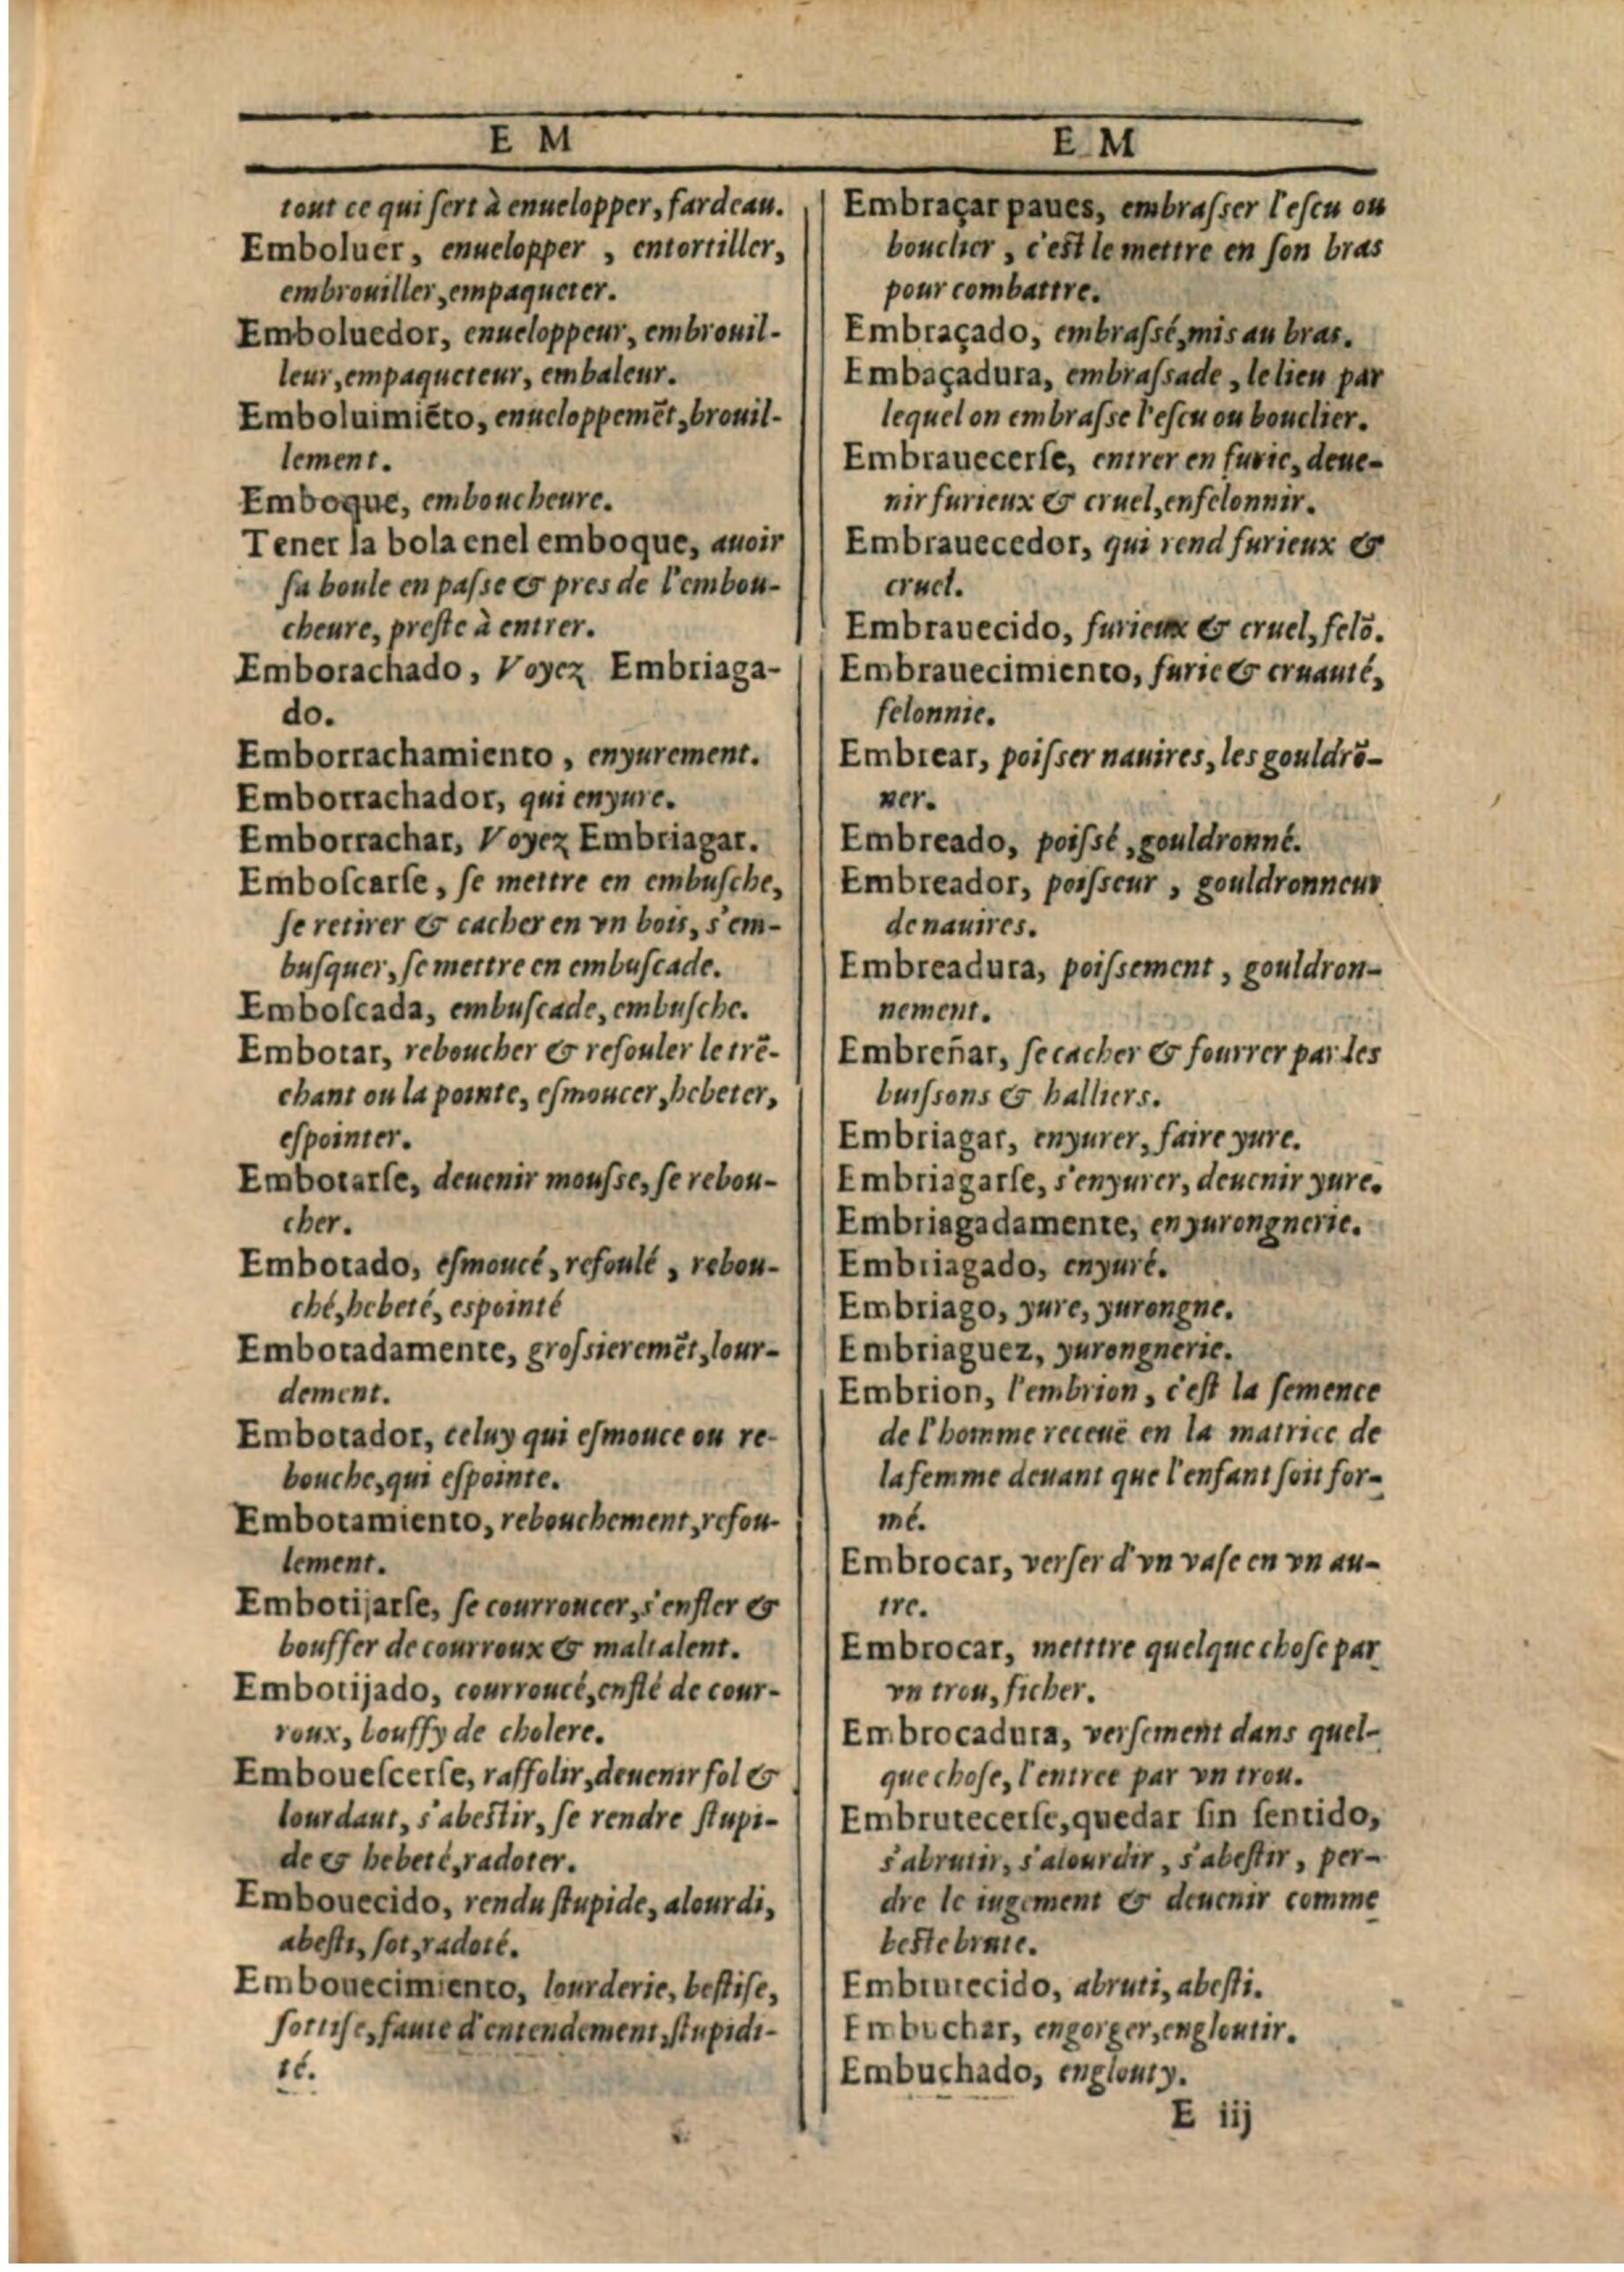 E M
tout ce qui ſert à enuelopper, fardeau.
Emboluer, enuelopper, entortiller,
embrouiller, empaqueter.
Emboluedor, enueloppeur, embrouil-
leur, empaqueteur, embaleur.
Emboluimiẽto, enueloppemẽt, brouil-
lement.
Emboque, emboucheure.
Tener la bola enel emboque, auoir
ſa boule en paſse & pres de l'embou-
cheure, preſte à entrer.
Emborachado, Voyez Embriaga-
do.
Emborrachamiento, enyurement.
Emborrachador, qui enyure.
Emborrachar, Voyez Embriagar.
Emboſcarſe, ſe mettre en embuſche,
ſe retirer & cacher en vn bois, s'em-
buſquer, ſe mettre en embuſcade.
Emboſcada, embuſcade, embuſche.
Embotar, reboucher & refouler le trẽ-
chant ou la pointe, eſmoucer, hebeter,
eſpointer.
Embotarſe, deuenir mouſse, ſe rebou-
cher.
Embotado, eſmoucé, refoulé, rebou-
ché, hebeté, espointé
Embotadamente, groſsieremẽt, lour-
dement.
Embotador, celuy qui eſmouce ou re-
bouche, qui eſpointe.
Embotamiento, rebouchement, refou-
lement.
Embotijarſe, ſe courroucer, s'enfler &
bouffer de courroux & maltalent.
Embotijado, courroucé, enflé de cour-
roux, bouffy de cholere.
Emboueſcerſe, raffolir, deuenir fol &
lourdaut, s'abeſtir, ſe rendre ſtupi-
de & hebeté, radoter.
Embouecido, rendu ſtupide, alourdi,
abeſti, ſot, radoté.
Embouecimiento, lourderie, beſtiſe,
ſottiſe, faute d'entendement, ſtupidi-
té.
E M
Embraçar paues, embraſser l'eſcu ou
bouclier, c'eſt le mettre en ſon bras
pour combattre.
Embraçado, embraſsé, mis au bras.
Embaçadura, embraſsade, le lieu par
lequel on embraſse l'eſcu ou bouclier.
Embrauecerſe, entrer en furie, deue-
nir furieux & cruel, enfelonnir.
Embrauecedor, qui rend furieux &
cruel.
Embrauecido, furieux & cruel, felõ.
Embrauecimiento, furie & cruauté,
felonnie.
Embrear, poiſser nauires, les gouldrõ-
ner.
Embreado, poiſsé, gouldronné.
Embreador, poiſseur, gouldronneur
de nauires.
Embreadura, poiſsement, gouldron-
nement.
Embreñar, ſe cacher & fourrer par les
buiſsons & halliers.
Embriagar, enyurer, faire yure.
Embriagarſe, s'enyurer, deuenir yure.
Embriagadamente, en yurongnerie.
Embriagado, enyuré.
Embriago, yure, yurongne.
Embriaguez, yurongnerie.
Embrion, l'embrion, c'eſt la ſemence
de l'homme receuë en la matrice de
la femme deuant que l'enfant ſoit for-
mé.
Embrocar, verſer d'vn vaſe en vn au-
tre.
Embrocar, metttre quelque choſe par
vn trou, ficher.
Embrocadura, verſement dans quel-
que choſe, l'entree par vn trou.
Embrutecerſe, quedar ſin ſentido,
s'abrutir, s'alourdir, s'abeſtir, per-
dre le iugement & deuenir comme
beſte brute.
Embrutecido, abruti, abeſti.
Embuchar, engorger, engloutir.
Embuchado, englouty.
E iij